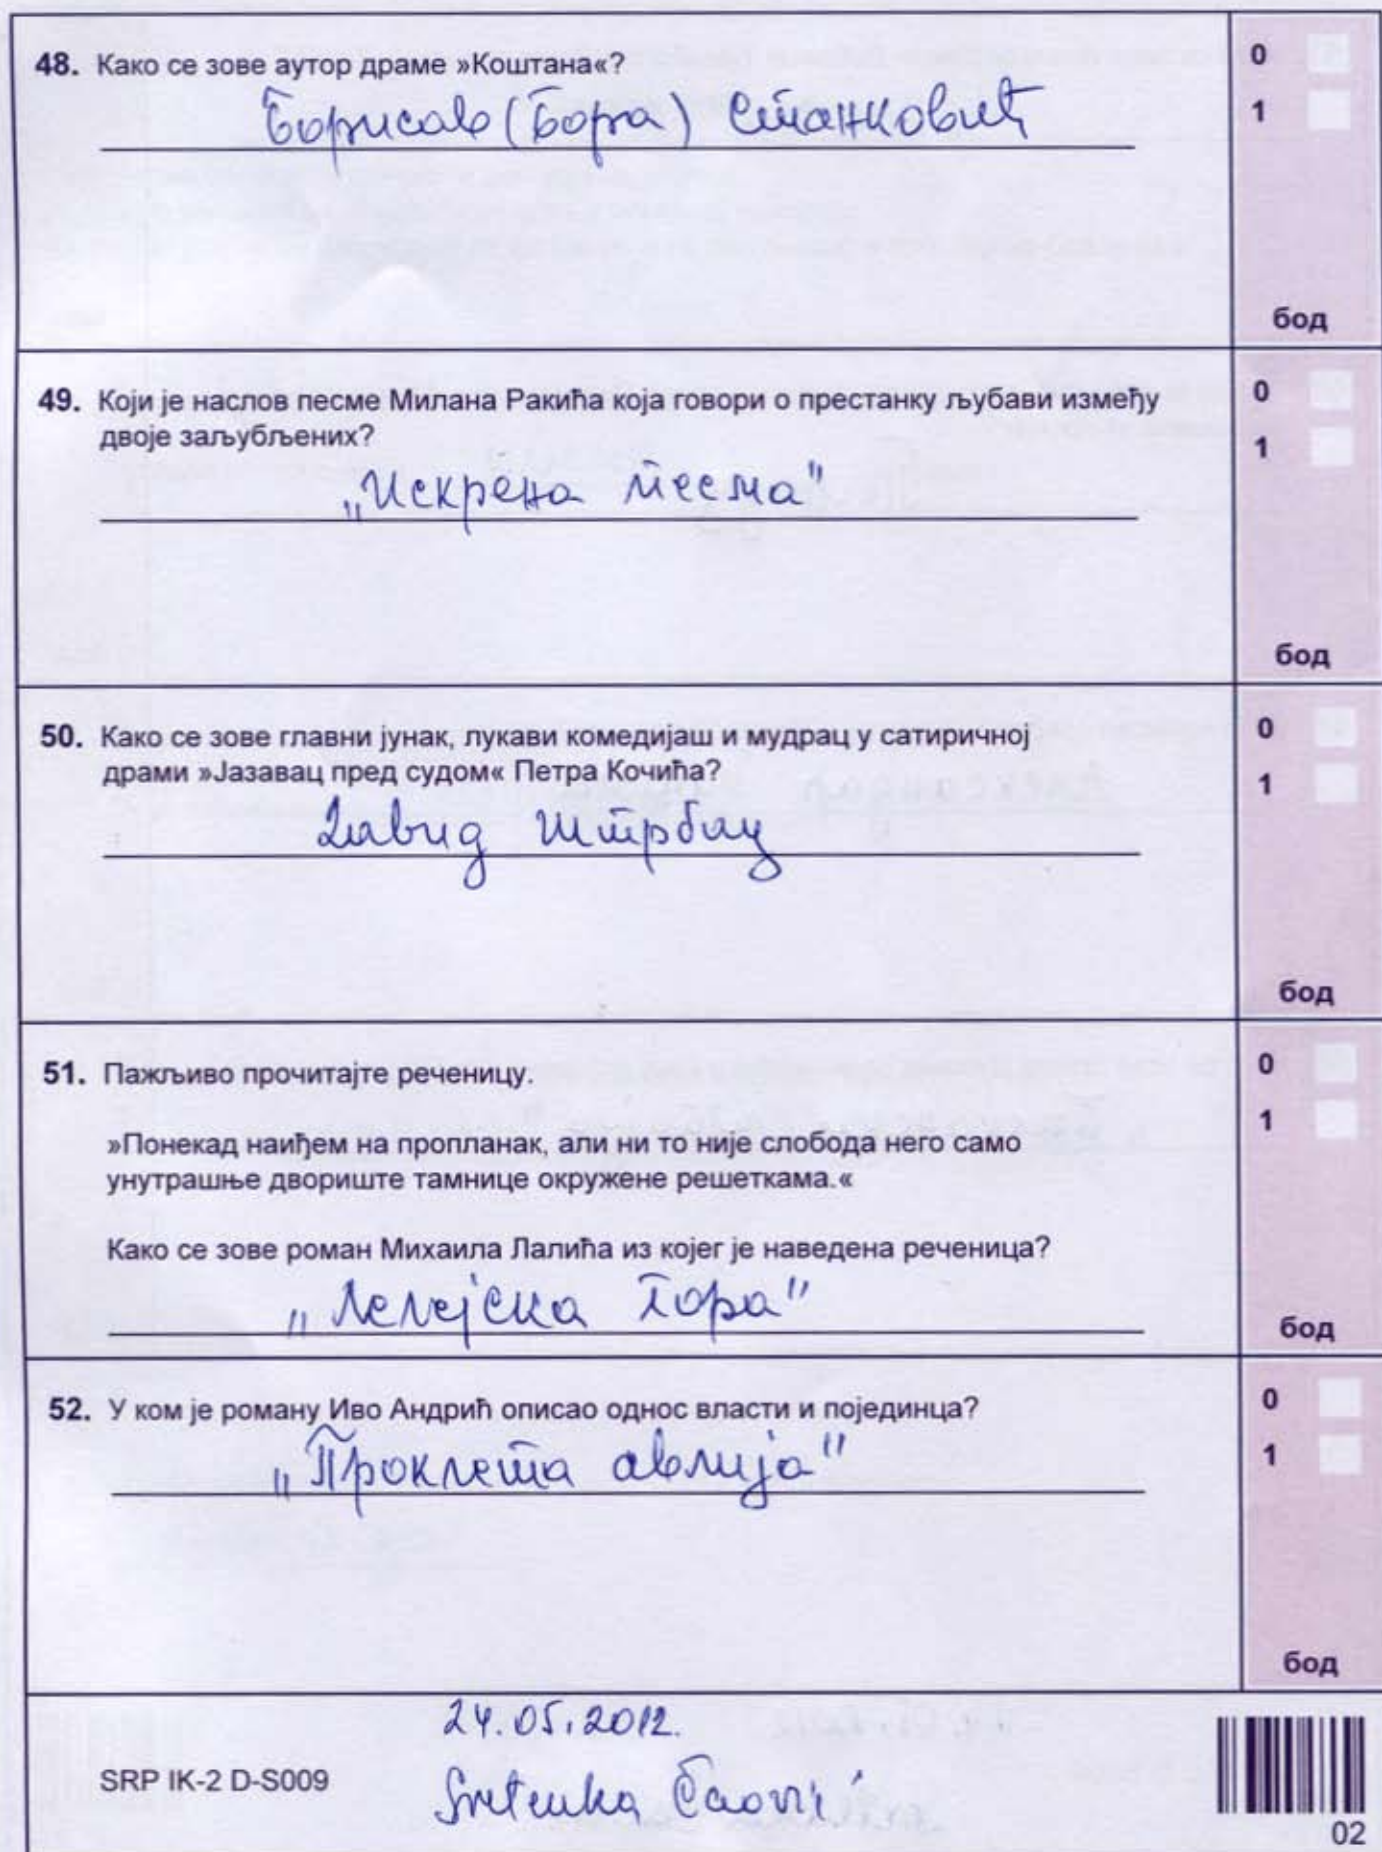 48. Како се зове аутор драме »Коштана«?
0
1
Борисав (Бора) Станковић
бод
49. Који је наслов песме Милана Ракића која говори о престанку љубави између
двоје заљубљених?
0
1
„Искрена песма"
бод
50. Како се зове главни јунак, лукави комедијаш и мудрац у сатиричној
драми »Јазавац пред судом« Петра Кочића?
0
1
Давид Штрбац
бод
51. Пажљиво прочитајте реченицу.
0
1
»Понекад наиђем на пропланак, али ни то није слобода него само
унутрашње двориште тамнице окружене решеткама.«
Како се зове роман Михаила Лалића из којег је наведена реченица?
„Лелејска гора"
бод
52. У ком је роману Иво Андрић описао однос власти и појединца?
0
1
„Проклета авлија"
бод
24.05.2012.
SRP IK-2 D-S009
02